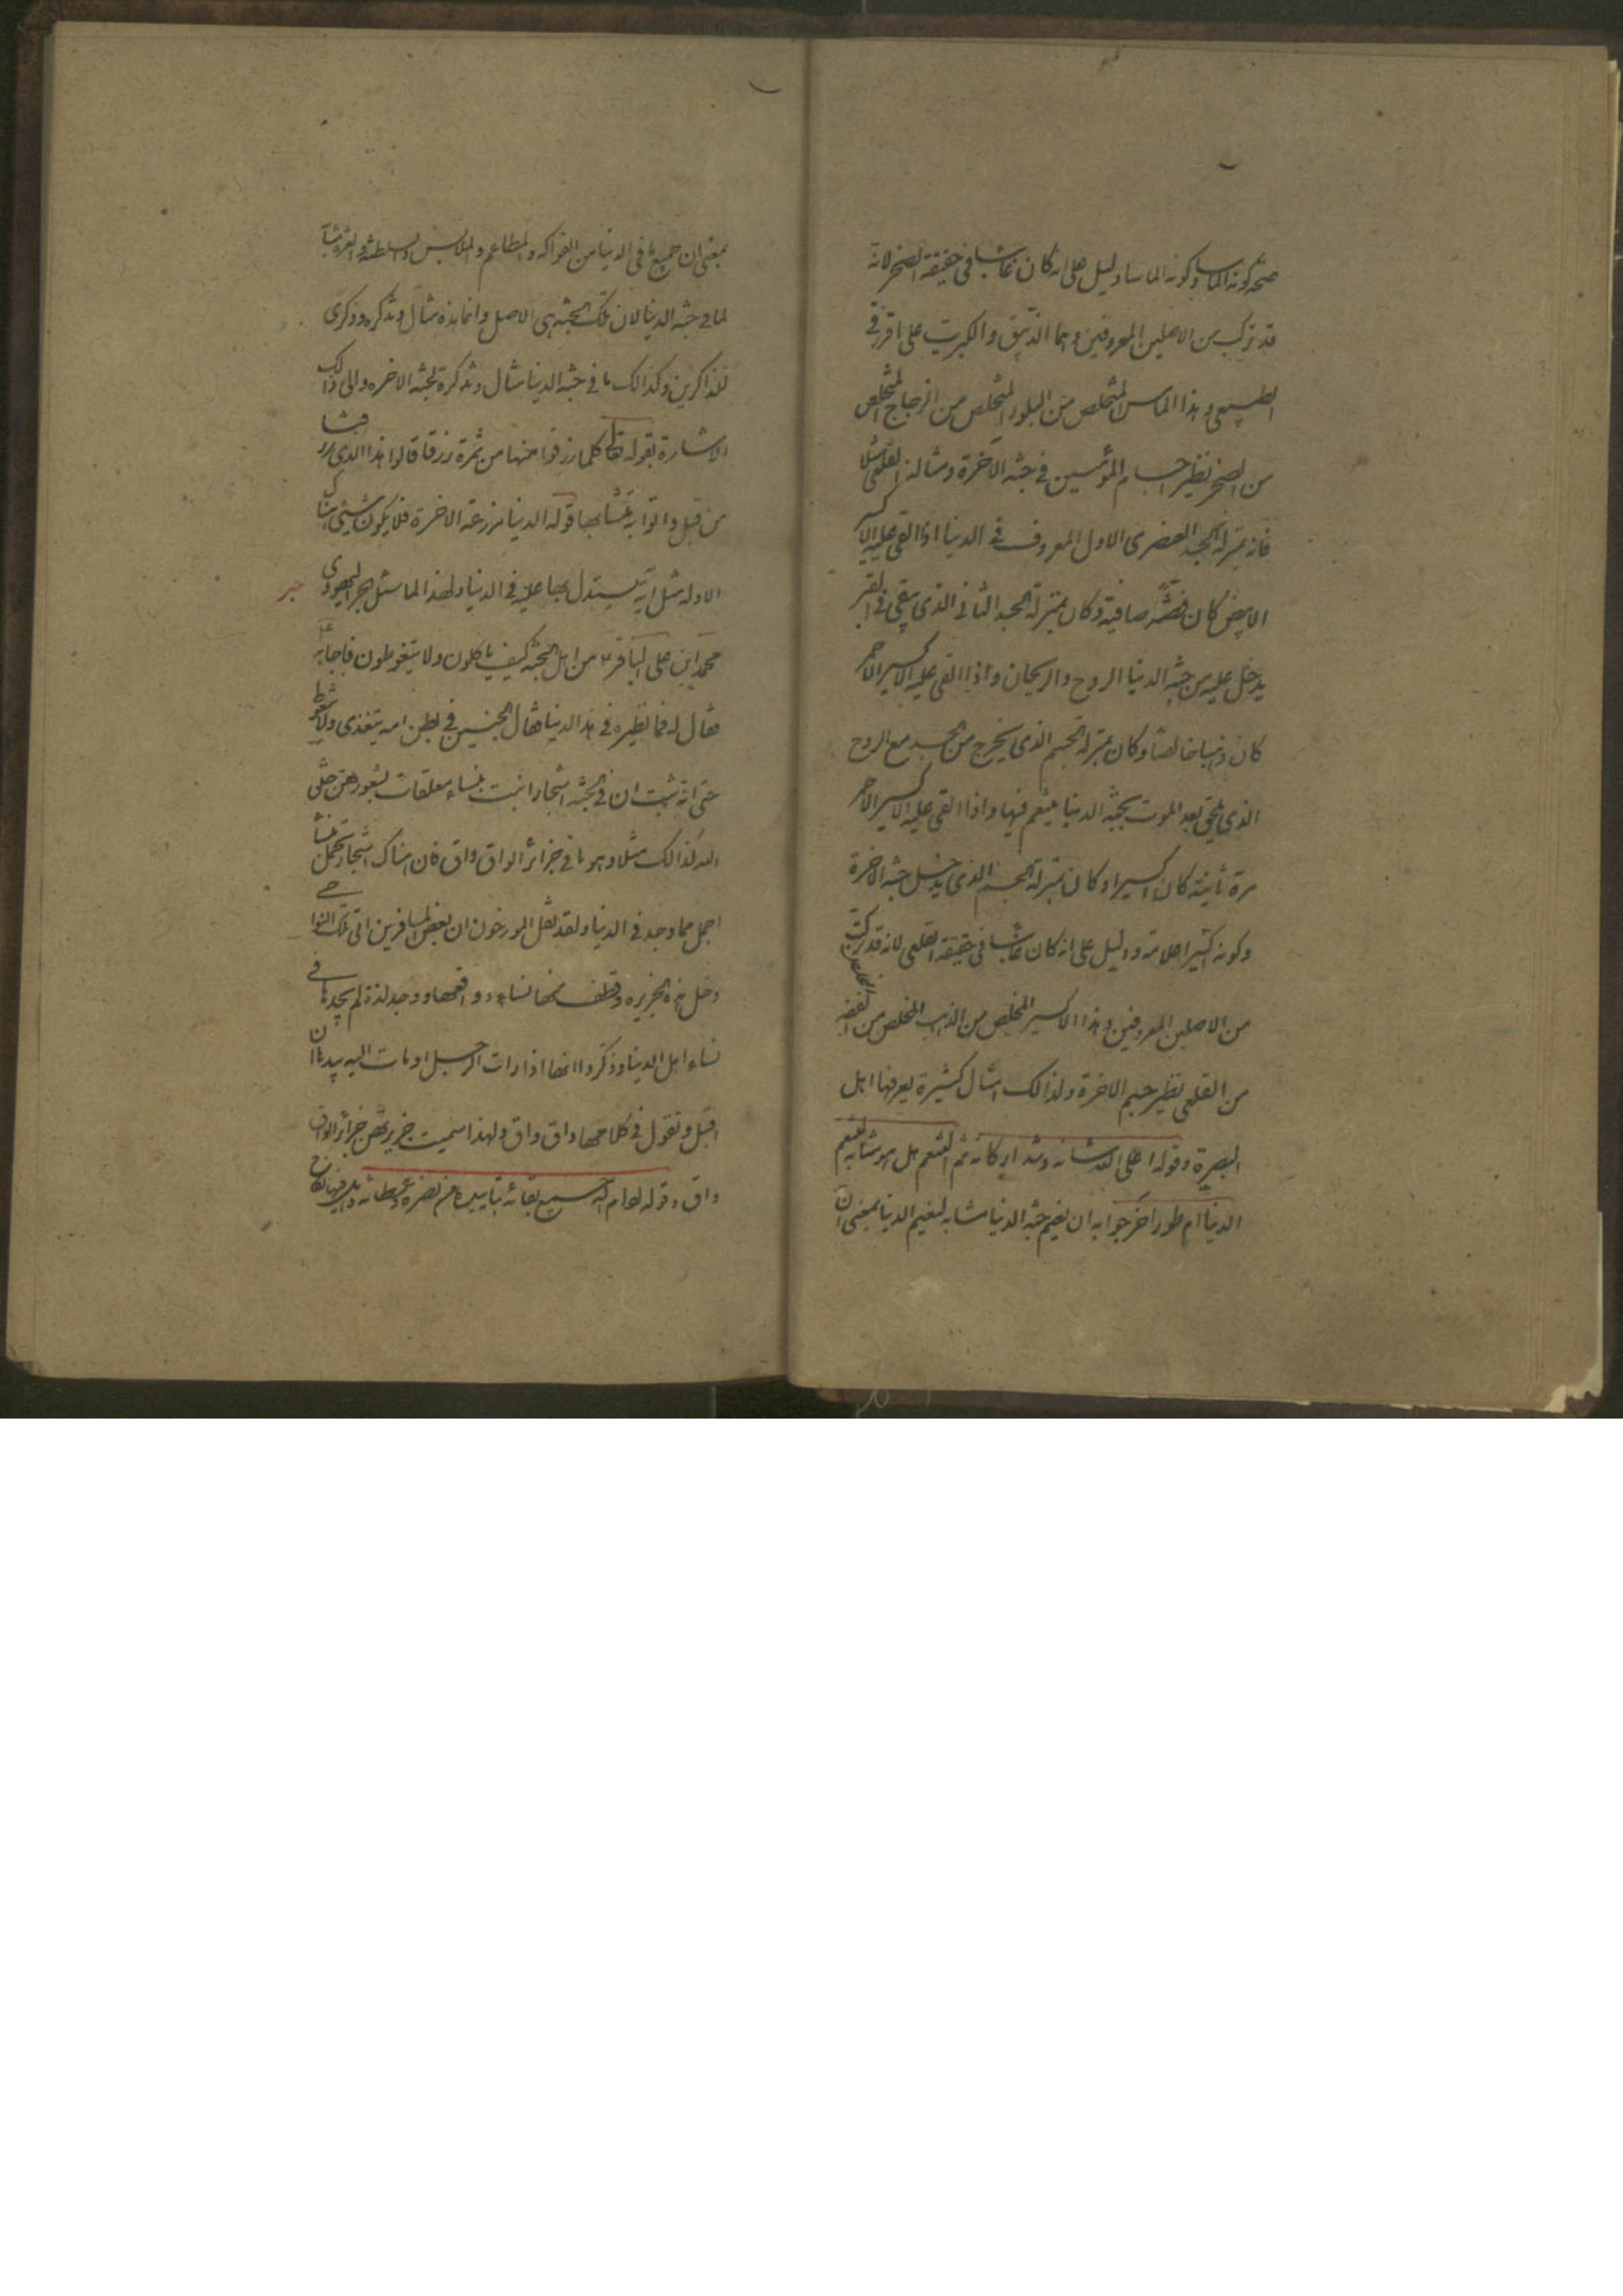 صحة كونه الماسا وكونه الماسا دليل على انه كان غائبا فى حقيقة الصخر لانه
قد تركب من الاصلين المعروفين وهما الزيبق والكبريت على ما قرر فى
الطبيعى وهذا الماس المتخلص من البلور المتخلص من الزجاج المتخلص
من الصخر نظير اجسام المؤمنين فى جنة الآخرة ومثاله القلعى مثلا
فانه بمنزلة الجسد العنصرى الاول المعروف فى الدنيا اذا القى عليه الاكسير
الابيض كان فضة صافية وكان بمنزلة الجسد الثانى الذى يبقى فى القبر
يدخل عليه من جنة الدنيا الروح والريحان واذا القى عليه الاكسير الاحمر
كان ذهبا خالصا وكان بمنزلة الجسم الذى يخرج من الجسد مع الروح
الذى يلحق بعد الموت بجنة الدنيا يتنعم فيها واذا القى عليه الاكسير الاحمر
مرة ثانية كان اكسيرا وكان بمنزلة الجسد الذى يدخل جنة الآخرة
وكونه اكسيرا علامة ودليل على انه كان غائبا فى حقيقة القلعى لانه قد تركب
من الاصلين المعروفين وهذا الاكسير المخلص من الذهب المخلص من الفضة المخلص
من القلعى نظير جسم الاخرة ولذالك امثال كثيرة يعرفها اهل
البصيرة وقوله اعلى الله شانه وشد اركانه ثم التنعم هل هو مشابه لتنعم
الدنيا ام طور اخر جوابه ان نعيم جنة الدنيا مشابه لنعيم الدنيا بمعنى ان
بمعنى ان جميع ما فى الدنيا من الفواكه والمطاعم والملابس
لما فى جنة الدنيا لان تلك الجنة هى الاصل وانما هذه مثال وتذكره وذكرى
للذاكرين وكذالك ما فى جنة الدنيا مثال وتذكرة لجنة الاخره والى ذالك
الاشارة بقوله تعالى كلما رزقوا منها من ثمرة رزقا قالوا هذا الذى رزقنا
من قبل واتوا به متشابها قوله الدنيا مزرعة الاخرة فلا يكون شيئ هناك
الا وله مثل آية يستدل بها عليه فى الدنيا ولهذا لما سئل الحبر اليهودى
حبر
محمد ابن على الباقر ع من اهل الجنة كيف ياكلون ولا يتغوطون فاجابه ع
فقال له فما نظيره فى هذه الدنيا فقال الجنين فى بطن امه يتغذى ولا يتغوط
حتى انه ثبت ان فى الجنة اشجارا نبتت بنساء معلقات بشعورهن خلق
الله لذالك مثلا وهو ما فى جزائر الواق واق فان هناك اشجار تحمل بنساء
اجمل مما وجد فى الدنيا ولقد نقل المورخون ان بعض المسافرين اتى تلك النواحى
دخل هذه الجزيره وقطف منها نساء وواقعها ووجد لذة لم يجدها فى
نساء اهل الدنيا وذكروا انها اذا رات الرجل اومات اليه بيدها ان
اقبل وتقول فى كلامها واق واق ولهذا سميت جزيرتهن جزائر الواق
واق وقوله ادام الله سبوغ بقائه